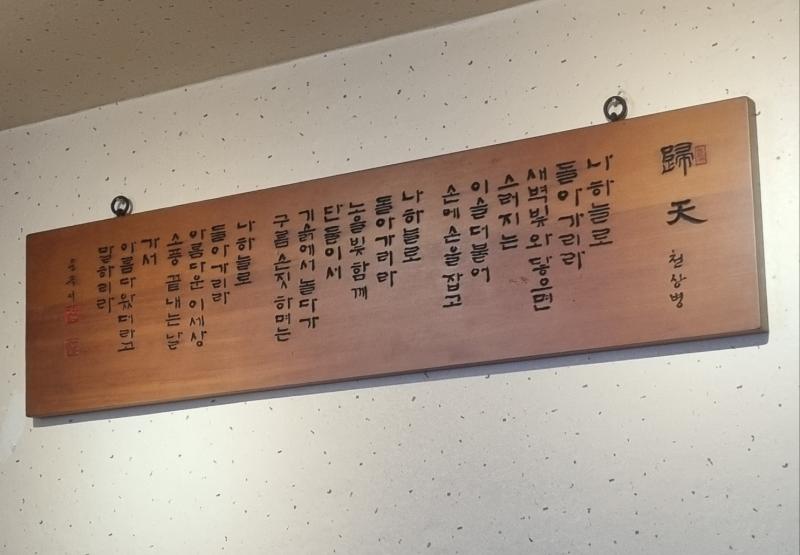 歸天
천상병
나 하늘로
돌아가리라
새벽빛 와 닿으면
스러지는
이슬 더불어
손에 손을 잡고
나 하늘로
돌아가리라
노을빛 함께
단 둘이서
기슭에서 놀다가
구름 손짓하며는
나 하늘로
돌아가리라
아름다운 이 세상
소풍 끝내는 날
가서
아름다웠더라고
말하리라